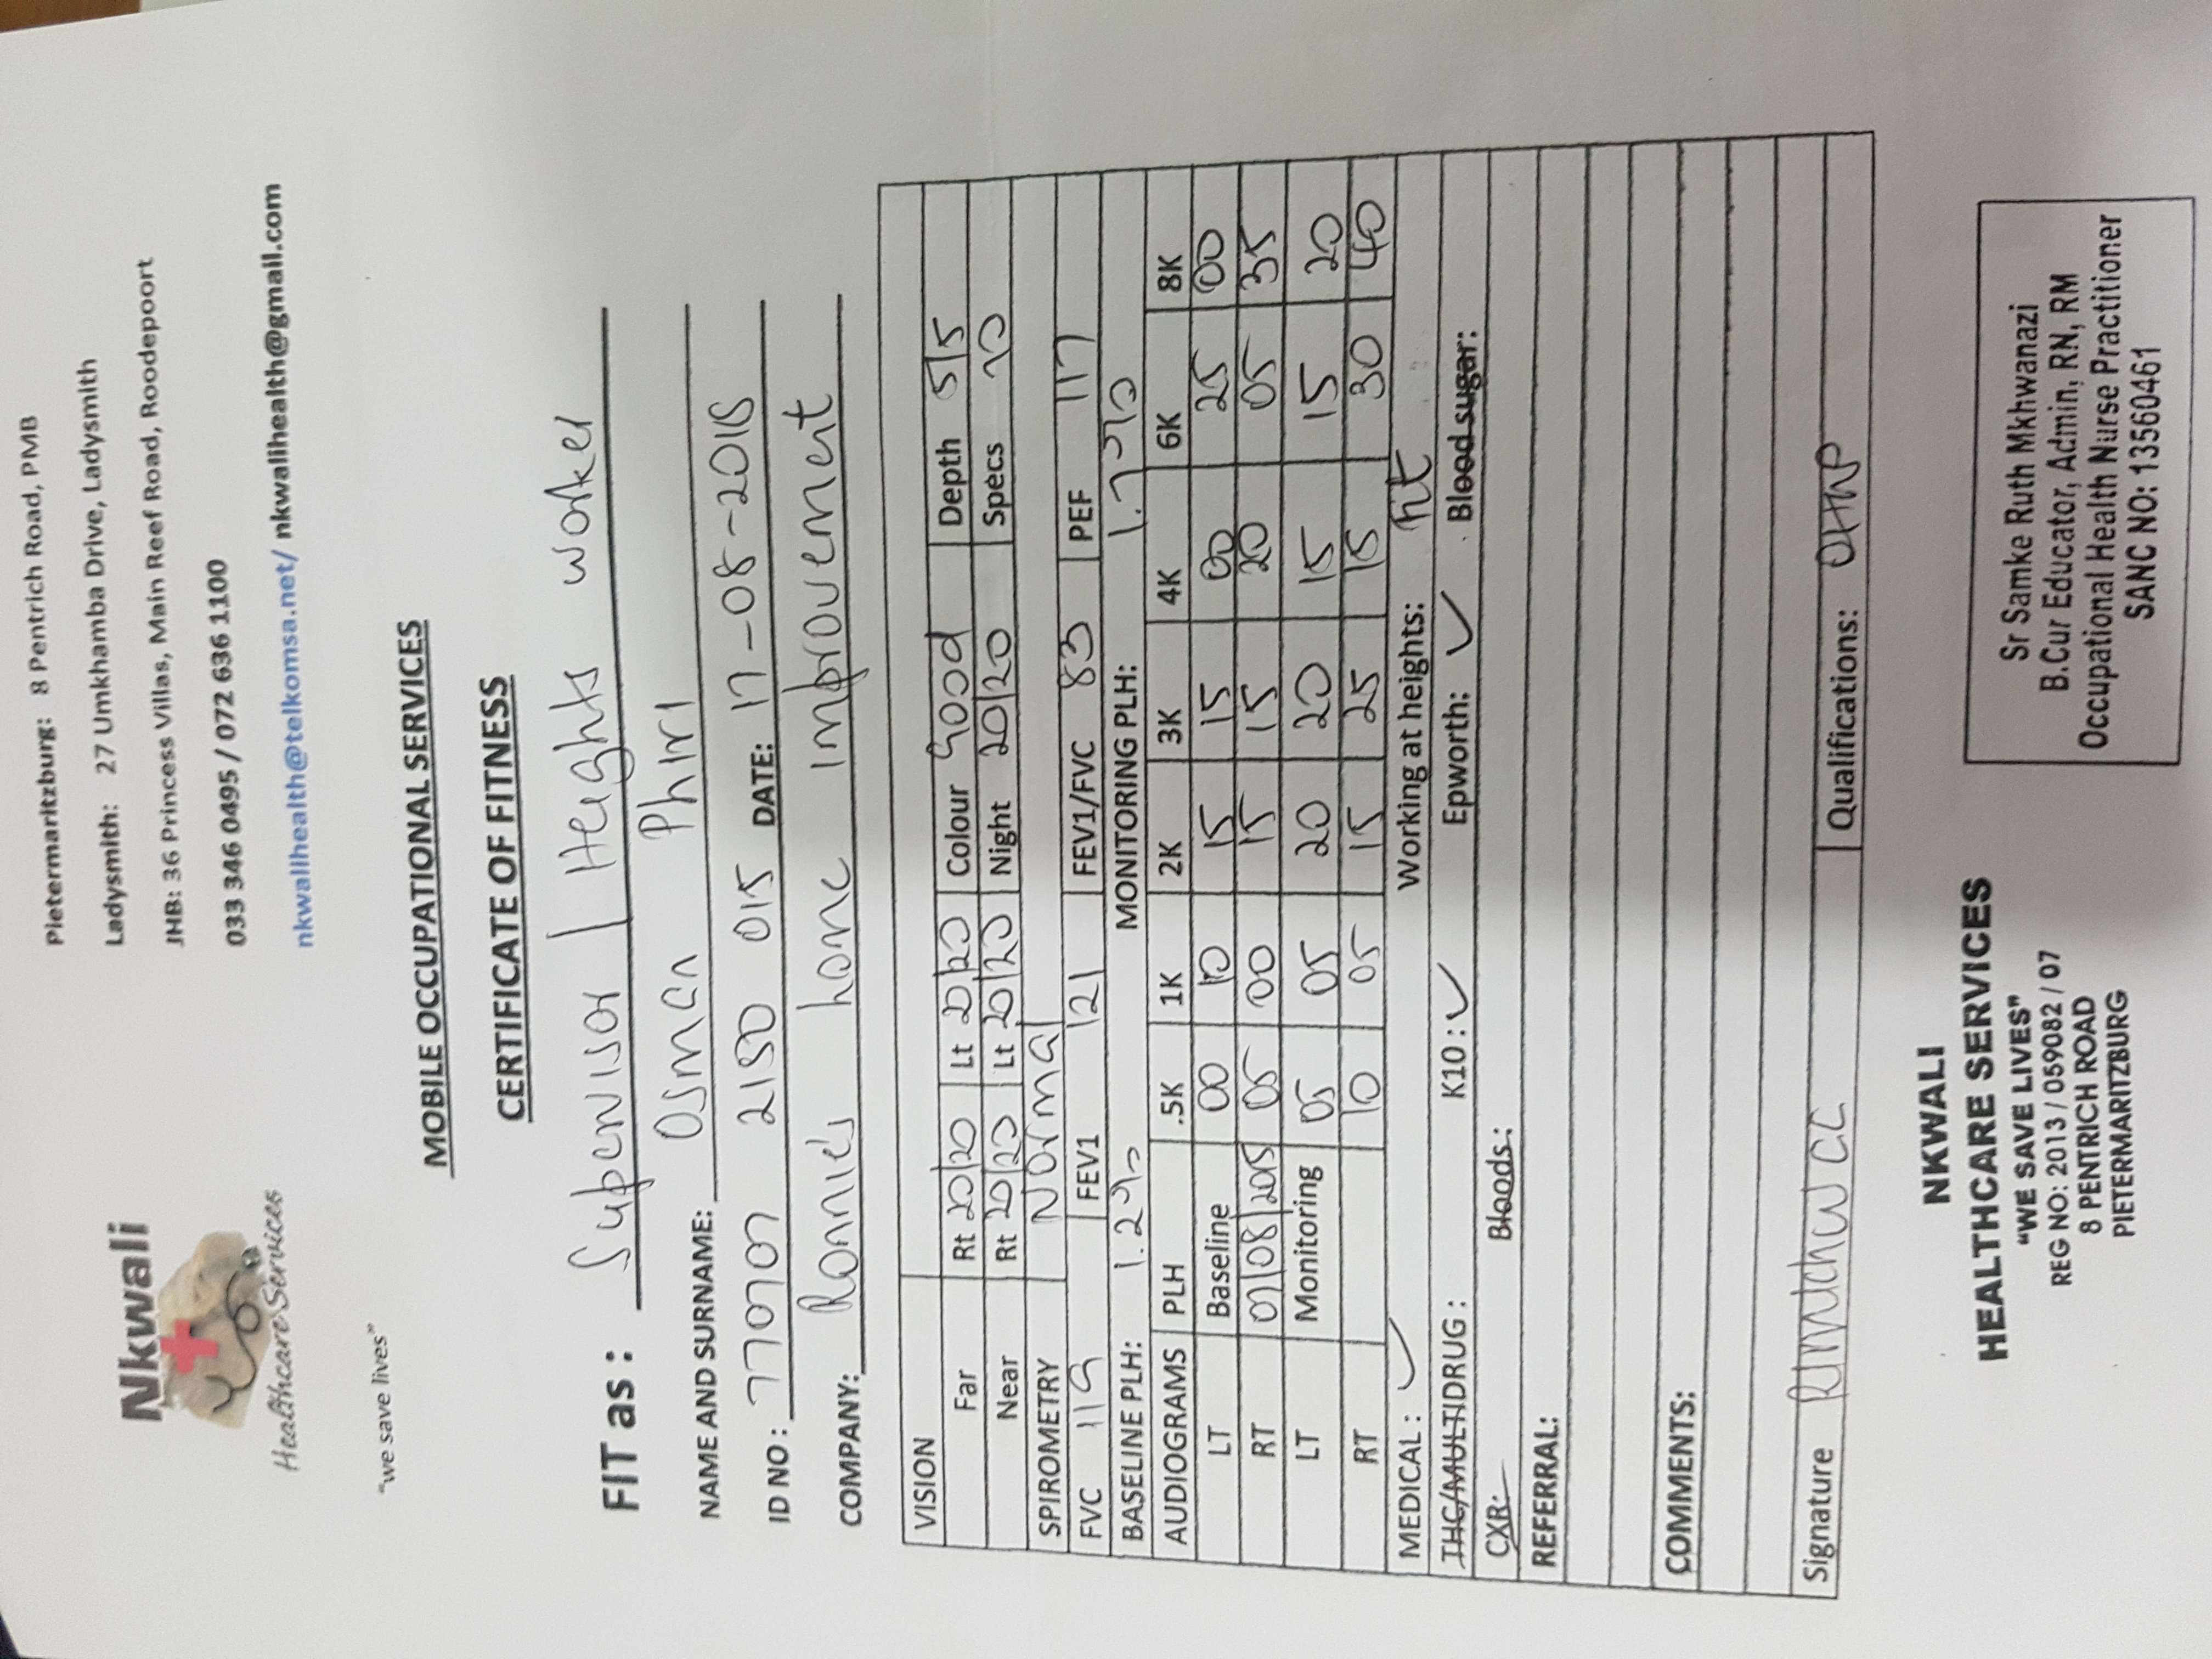 Nkwali
Healthcare Services
"we save lives"
Pietermaritzburg: 8 Pentrich Road, PMB
Ladysmith: 27 Umkhamba Drive, Ladysmith
JHB: 36 Princess Villas, Main Reef Road, Roodepoort
033 346 0495 / 072 636 1100
nkwalihealth@telkomsa.net/ nkwalihealth@gmail.com
MOBILE OCCUPATIONAL SERVICES
CERTIFICATE OF FITNESS
FIT as: Supervisor | Heights worker
NAME AND SURNAME: Osman Phiri
ID NO: 770707 2150 015 DATE: 17-08-2018
COMPANY: Ronnie's home improvement
VISION
Far Rt 20/20 Lt 20/20 Colour Good Depth 5/5
Near Rt 20/20 Lt 20/20 Night 20/20 Specs no
SPIROMETRY Normal
FVC 119 FEV1 121 FEV1/FVC 83 PEF 117
BASELINE PLH: 1.2% MONITORING PLH: 1.7%
AUDIOGRAMS PLH .5K 1K 2K 3K 4K 6K 8K
LT Baseline 00 10 15 15 00 25 00
RT 07/08/2015 05 00 15 15 20 05 35
LT Monitoring 05 05 20 20 15 15 20
RT 10 05 15 25 15 30 40
MEDICAL: ✓ Working at heights: fit
THC/MULTIDRUG: K10: ✓ Epworth: ✓ Blood sugar:
CXR: Bloods:
REFERRAL:
COMMENTS:
Signature Qualifications: OHNP
NKWALI
HEALTHCARE SERVICES
"WE SAVE LIVES"
REG NO: 2013 / 059082 / 07
8 PENTRICH ROAD
PIETERMARITZBURG
Sr Samke Ruth Mkhwanazi
B.Cur Educator, Admin, RN, RM
Occupational Health Nurse Practitioner
SANC NO: 13560461